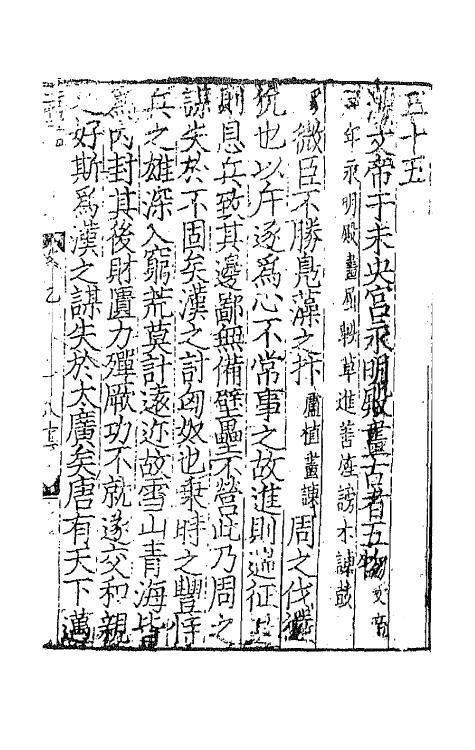 五十五
漢文帝于未央宮永明殿畫古者五物
永明殿畫屈軼草進善旌誹謗木諫鼓
微臣不勝鳧藻之抃 盧植畫諫 周之伐獫
狁也以斥逐為心不常事之故進則過征
則息兵致其邊鄙無備壁壘不營此乃周之
謀失於不固矣漢之討匈奴也乗時之豐恃
兵之雄深入窮荒莫計逺近故雪山青海皆
為内封其後財匱力殫厥功不就遂交和親
好斯為漢之謀失於太廣矣唐有天下邁